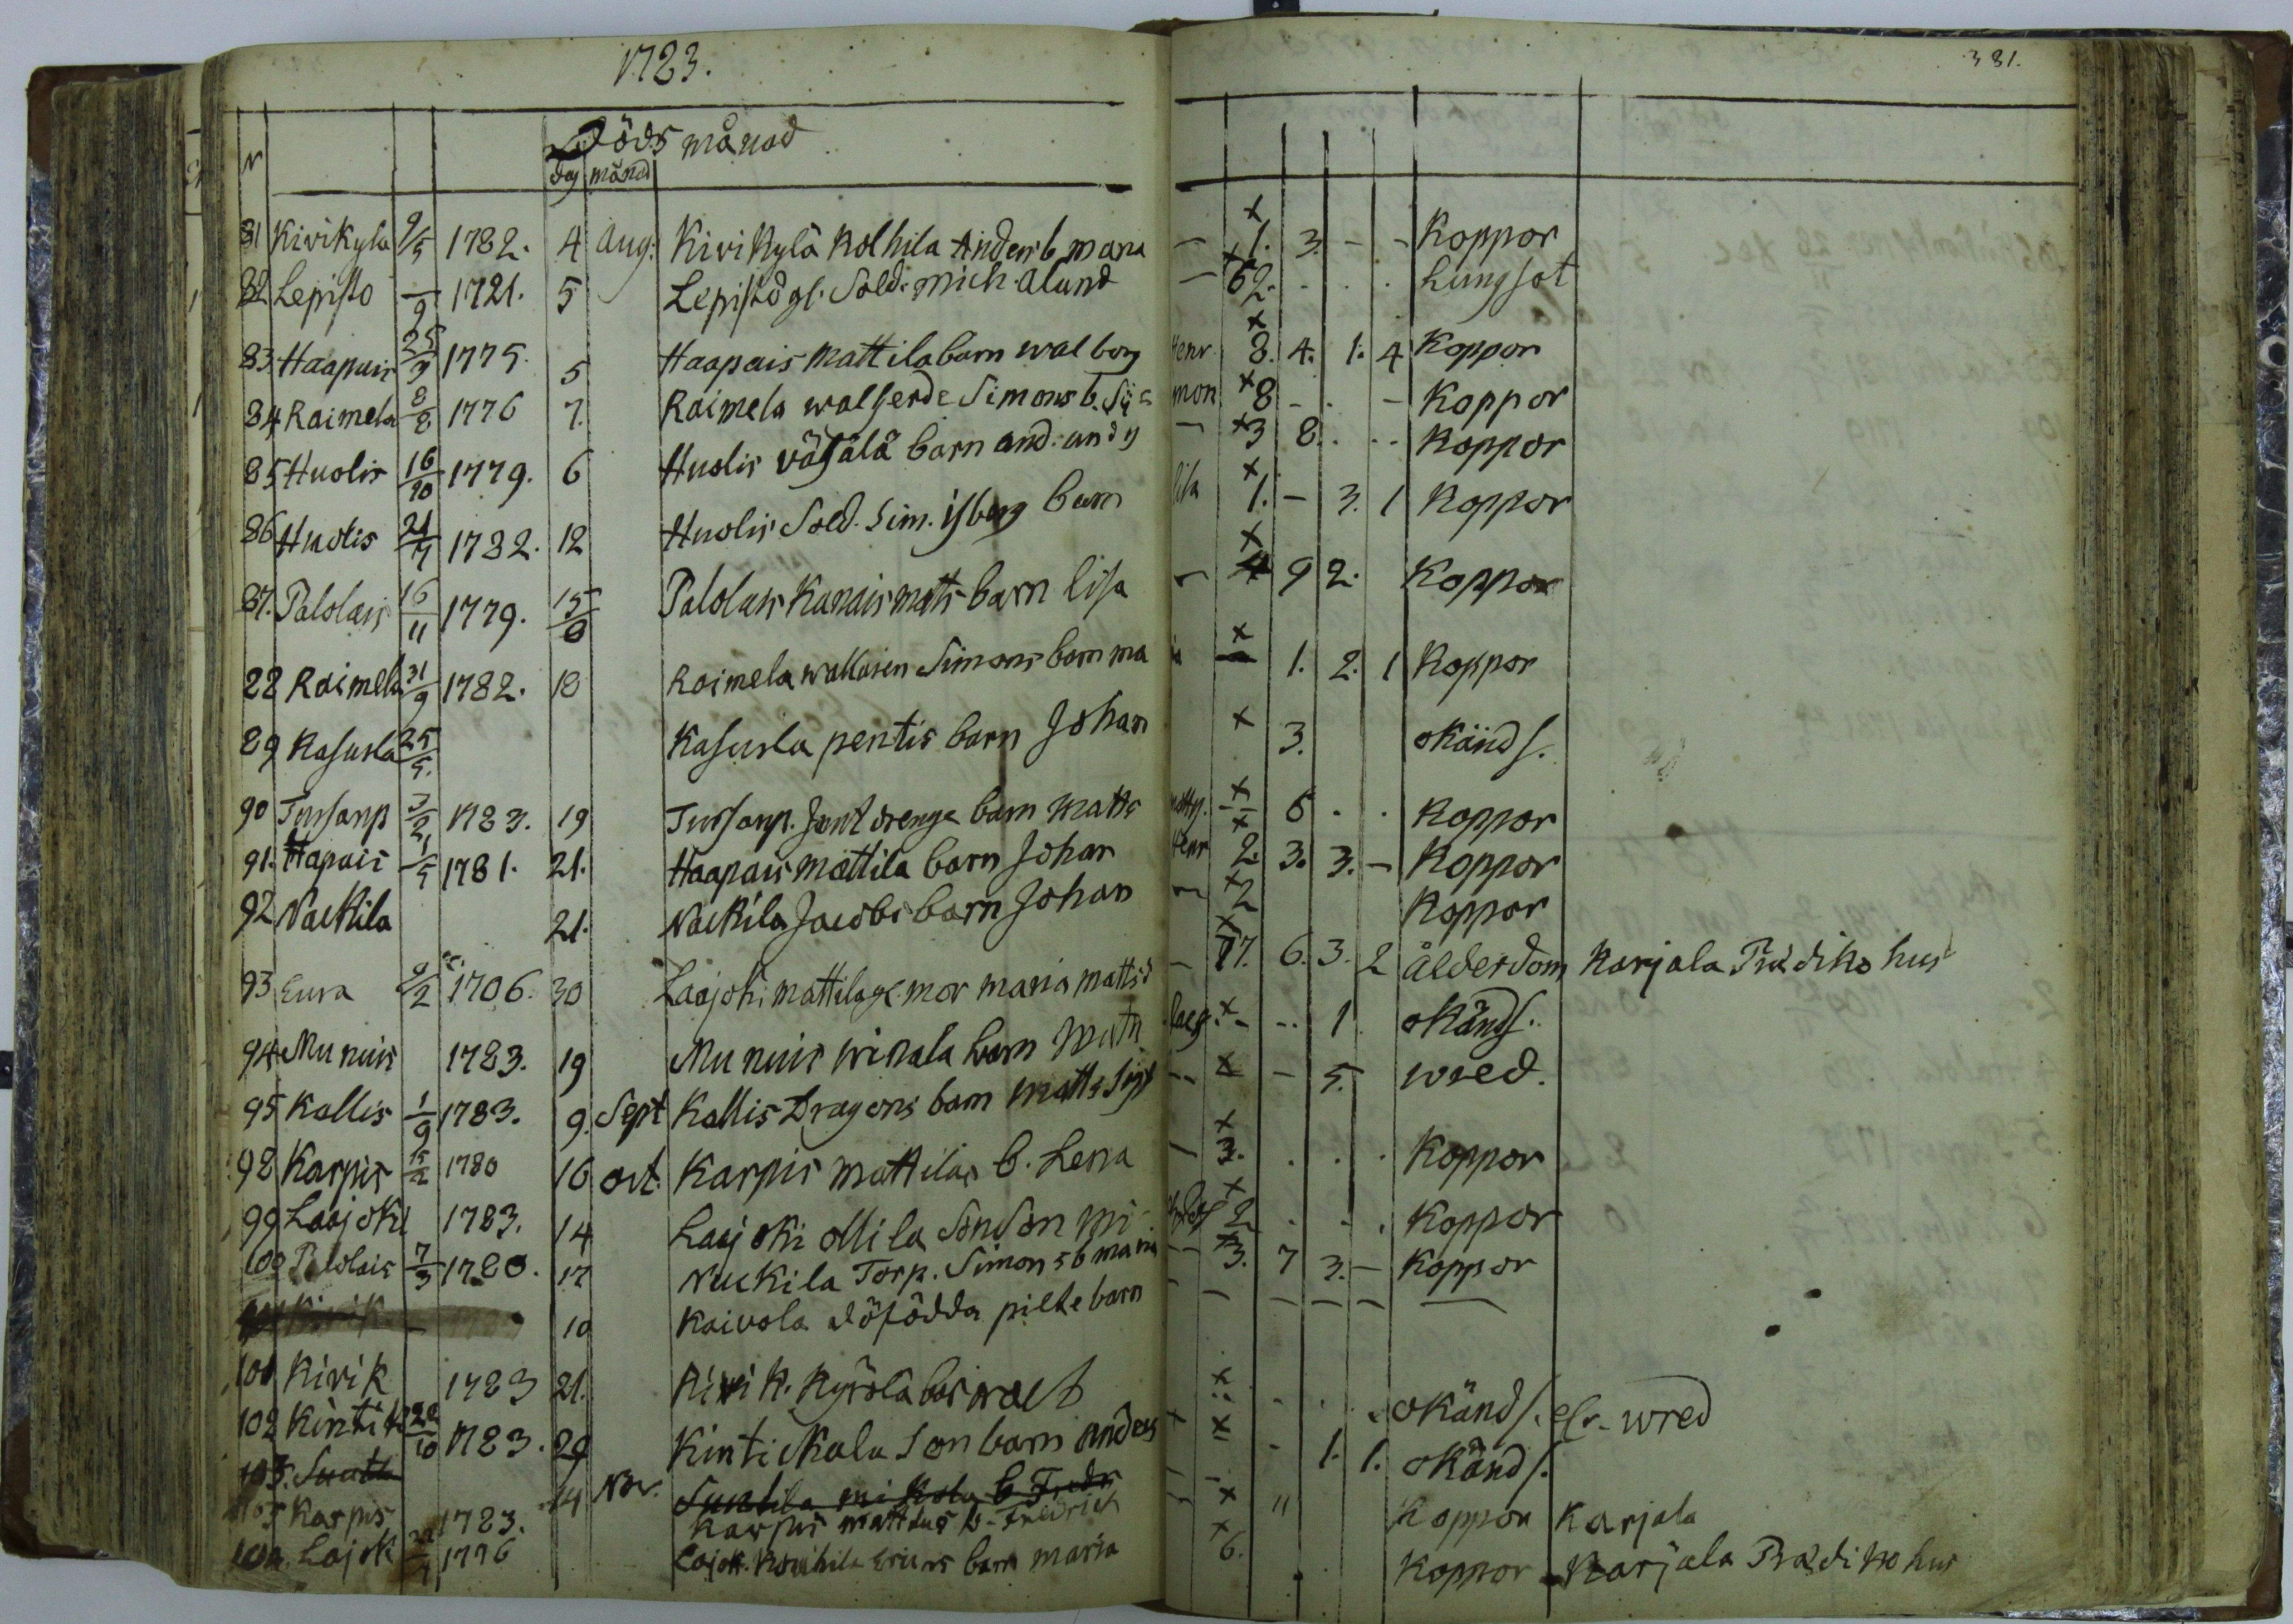 1783.
381.
N Döds månad
dag månad
81 Kivikylä 9/5 1782. 4 Aug. Kivikylä Kolhila Anders b. maria — 1. 3. - - Koppor
82 Lepisto —/9 1721. 5 Lepistö gl. Sold. Mich. Alund — 62. . . . Lungsot
83 Haapais 25/3 1775. 5 Haapais Mattila barn walborg Henr. 8. 4. 1. 4 Koppor
84 Raimela 8/8 1776 7. Raimela Simons b. mon 8 - . - Koppor
85 Huolis 16/10 1779. 6 Huolis barn and. — 3 8. . . Koppor
86 Huolis 21/7 1782. 12 Huolis Sold. Sim. isberg barn lisa 1. - 3. 1 Koppor
87. Palolais 16/11 1779. 15/8 Palolais Kanais mats barn lisa — 4 9 2. Koppor
88 Raimela 31/9 1782. 18 Raimela Simons barn ma ia — 1. 2. 1 Koppor
89 Kasurla 25/5. Kasurla pentis barn Johan 3. okänd s.
90 3/2 1783. 19 drengs barn Matts matts. — 5 . . Koppor
91. Hapais 1/5 1781. 21. Haapais mattila barn Johan Henr 2. 3. 3. - Koppor
92 Nackila 21. Nackila Jacobs barn Johan — 2 Koppor
93 Eura 9/2 1706. 30 Laajoki mattila gl. mor maria mattsd — 77. 6. 3. 2 Ålderdom Karjala Prädiko hus
94 Munuis 1783. 19 Munuis barn - .. 1. okänd s.
95 Kallis 1/9 1783. 9. Sept Kallis Dragons barn matts — - 5. wred.
98 Karpis 15/2 1780 16 oct. Karpis mattilas b. Lena — 3. . . . Koppor
99 Laajoki 1783. 14 Laajoki ollila SonSon 2 . - . Koppor
100 Palolais 7/3 1780. 17 Nuckila Torp. Simons b maria — 3. 7 3. — Koppor
10 Kaivola döfödda pilte barn — — — — —
101 Kivik 1783 21. Kivik. Kyrölä okänd s. wred
102 Kintik 28/10 1783. 29 Kintickala Son barn Anders - 1. 1. okänd s.
103. 14 Nov. Suntila mikola b Fredr
105 Karpis 1783. Karpis mattilas b. Fredrich " Koppor Karjala
104. Lajok 1776 Lajok. barn maria 6. Koppor Karjala Prädiko hus